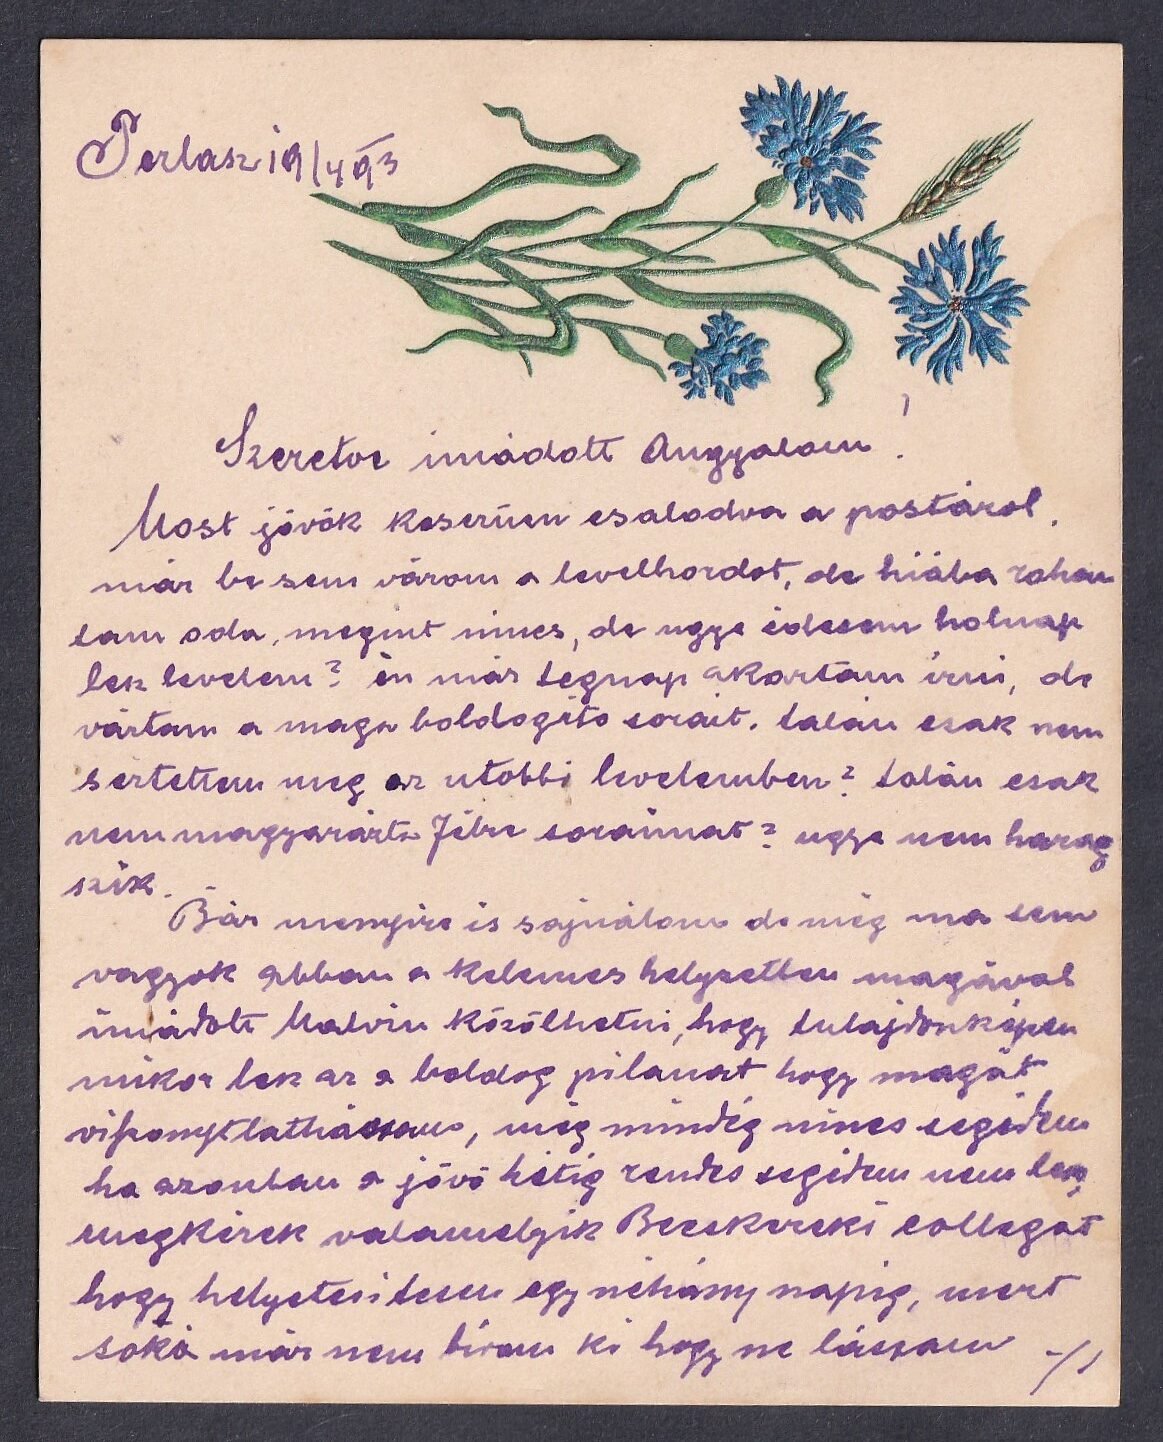 Perlasz 19/4 93
Szeretve imádott Angyalom!
Most jövök keserüen csalodva a postárol,
már be sem várom a levelhordot, de hiába rohan
tam oda, megint nincs, de ugye édesem holnap
lesz levelem? én már tegnap akartam irni, de
vártam a maga boldogito sorait. talán csak nem
sértettem meg az utobbi levelemben? talán csak
nem magyarázta félre soraimat? ugye nem harag
szik.
Bár menyire is sajnálom de még ma sem
vagyok abban a kelemes helyzetben magával
imádott Malvin közölhetni, hogy tulajdonképen
mikor lesz az a boldog pilanat hogy magát
viszont láthassam, még mindég nincs segédem
ha azonban a jövö hétig rendes segédem nem lesz,
megkérek valamelyik Becskereki collegát
hogy helyetesitsen egy néhány napig, mert
soká már nem birom ki hogy ne lássam -/.